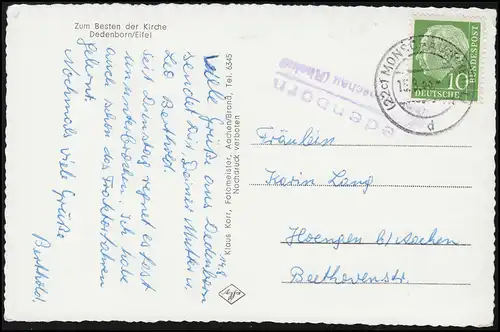 Zum Besten der Kirche
Dedenborn/Eifel
Viele Grüße aus Dedenborn
sendet Dir Deine Mutter u.
Leo Berthold.
Seit Dienstag regnet es fast
ununterbrochen. Ich habe
auch schon das Traktorfahren
gelernt.
Nochmals viele Grüße
Berthold
Klaus Korr, Fotomeister, Aachen/Brand, Tel. 6345
Nachdruck verboten
Dedenborn
Monschau (Rheinl)
(22c) MONSCHAU
d
DEUTSCHE
BUNDESPOST
10
Fräulein
Karin Lang
Hoengen b/Aachen
Beethovenstr.